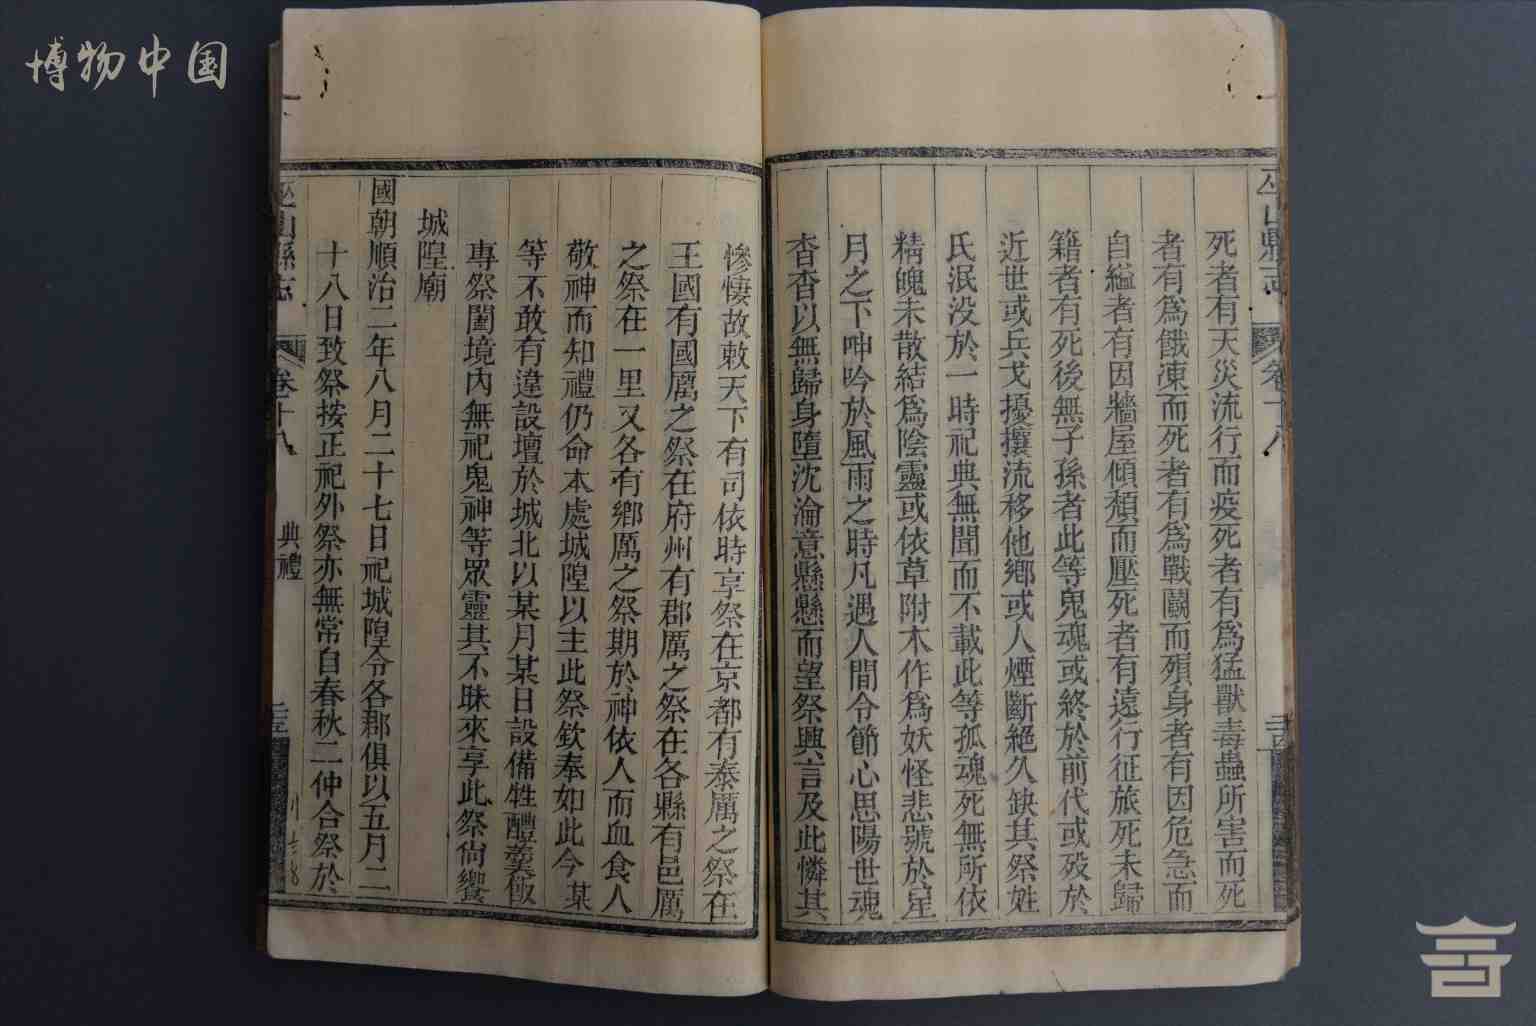 博物中国
巫山縣志
卷十八
死者有天災流行而疫死者有爲猛獸毒蟲所害而死
者有爲餓凍而死者有爲戰鬭而殞身者有因危急而
自縊者有因牆屋傾頹而壓死者有遠行征旅死未歸
籍者有死後無子孫者此等鬼魂或終於前代或歿於
近世或兵戈擾攘流移他鄉或人煙斷絕久缺其祭姓
氏泯没於一時祀典無聞而不載此等孤魂死無所依
精魄未散結爲陰靈或依草附木作爲妖怪悲號於星
月之下呻吟於風雨之時凡遇人間令節心思陽世魂
杳杳以無歸身墮沈淪意懸懸而望祭興言及此憐其
慘悽故敕天下有司依時享祭在京都有泰厲之祭在
王國有國厲之祭在府州有郡厲之祭在各縣有邑厲
之祭在一里又各有鄉厲之祭期於神依人而血食人
敬神而知禮仍命本處城隍以主此祭欽奉如此今某
等不敢有違設壇於城北以某月某日設備牲醴羹飯
專祭闔境內無祀鬼神等眾靈其不昧來享此祭尙饗
城隍廟
國朝順治二年八月二十七日祀城隍令各郡俱以五月二
十八日致祭按正祀外祭亦無常自春秋二仲合祭於
巫山縣志
卷十八
典禮